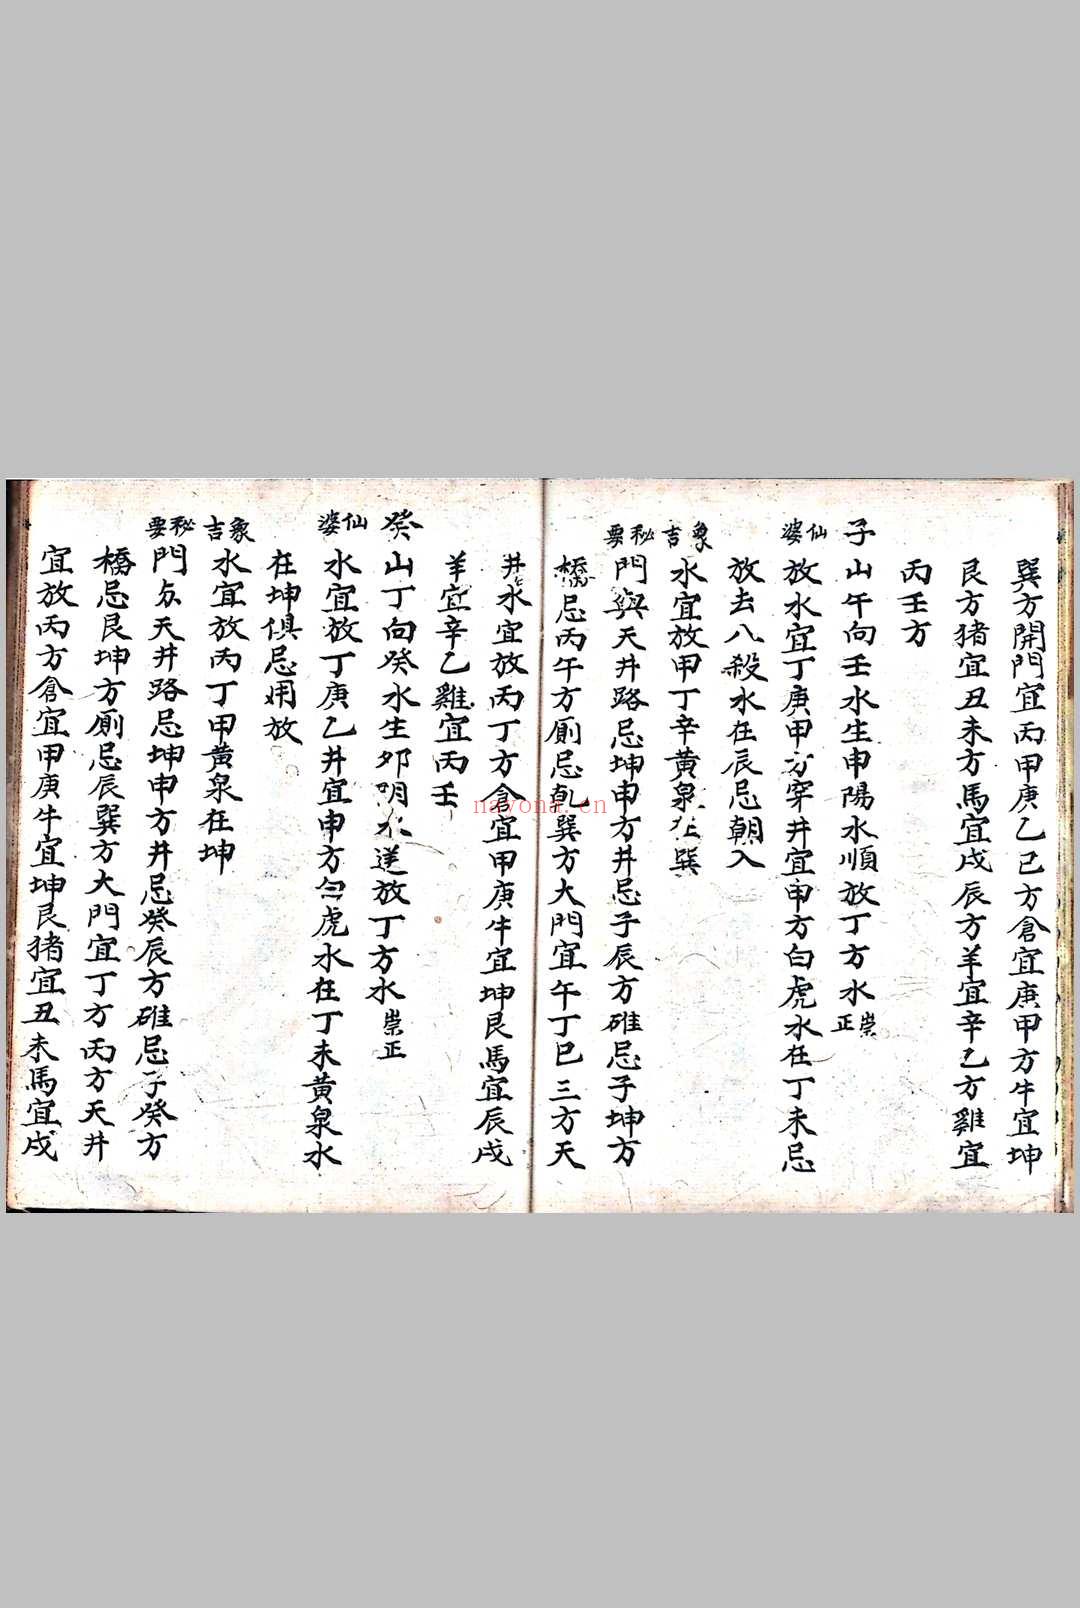 巽方開門宜丙甲庚乙巳方倉宜庚甲方牛宜坤
艮方猪宜丑未方馬宜戍辰方羊宜辛乙方雞宜
丙壬方
子山午向壬水生申陽水順放丁方水崇正
仙婆
放水宜丁庚甲方穿井宜申方白虎水在丁未忌
放去八殺水在辰忌朝入
象吉
水宜放甲丁辛黄泉在巽
秘要
門與天井路忌坤申方井忌子辰方碓忌子坤方
橋忌丙午方厠忌乹巽方大門宜午丁巳三方天
井水宜放丙丁方倉宜甲庚牛宜坤艮馬宜辰戍
羊宜辛乙雞宜丙壬
癸山丁向癸水生夘明水逆放丁方水崇正
仙婆
水宜放丁庚乙井宜申方白虎水在丁未黄泉水
在坤俱忌用放
象吉
水宜放丙丁甲黄泉在坤
秘要
門与天井路忌坤申方井忌癸辰方碓忌子癸方
橋忌艮坤方厠忌辰巽方大門宜丁方丙方天井
宜放丙方倉宜甲庚牛宜坤艮猪宜丑未馬宜戍
nayona.cn